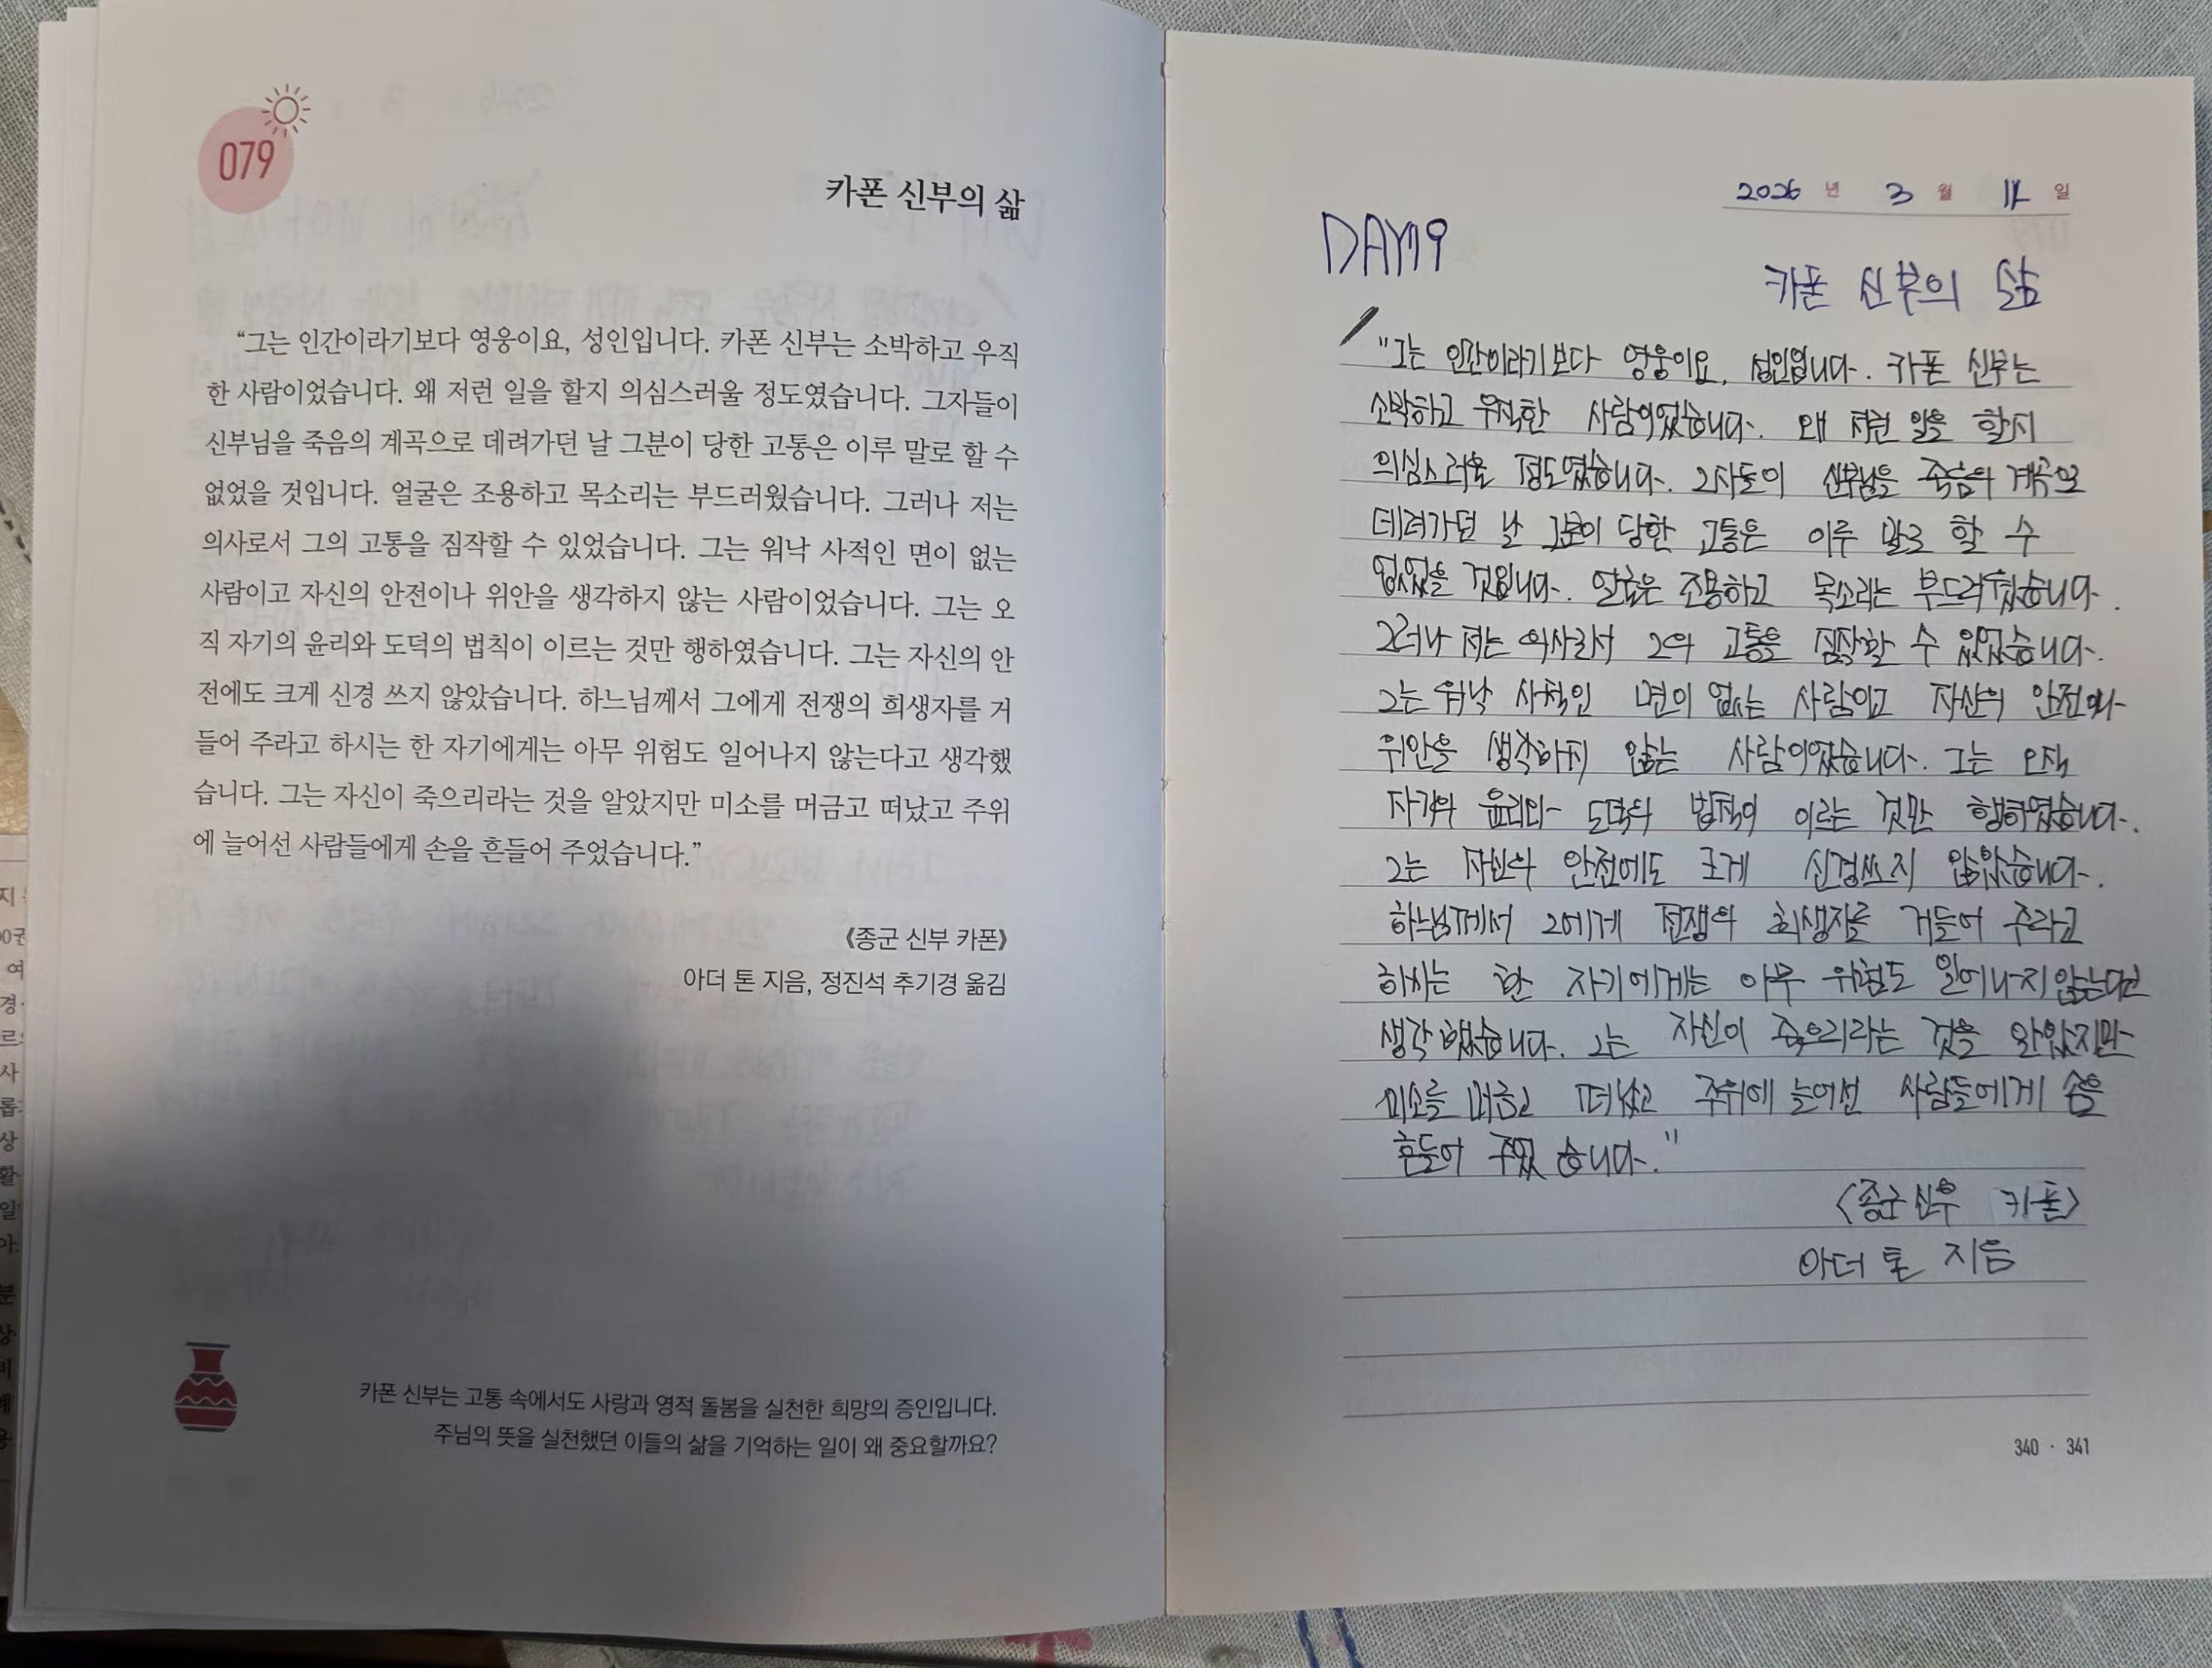 079
카폰 신부의 삶
“그는 인간이라기보다 영웅이요, 성인입니다. 카폰 신부는 소박하고 우직
한 사람이었습니다. 왜 저런 일을 할지 의심스러울 정도였습니다. 그자들이
신부님을 죽음의 계곡으로 데려가던 날 그분이 당한 고통은 이루 말로 할 수
없었을 것입니다. 얼굴은 조용하고 목소리는 부드러웠습니다. 그러나 저는
의사로서 그의 고통을 짐작할 수 있었습니다. 그는 워낙 사적인 면이 없는
사람이고 자신의 안전이나 위안을 생각하지 않는 사람이었습니다. 그는 오
직 자기의 윤리와 도덕의 법칙이 이르는 것만 행하였습니다. 그는 자신의 안
전에도 크게 신경 쓰지 않았습니다. 하느님께서 그에게 전쟁의 희생자를 거
들어 주라고 하시는 한 자기에게는 아무 위험도 일어나지 않는다고 생각했
습니다. 그는 자신이 죽으리라는 것을 알았지만 미소를 머금고 떠났고 주위
에 늘어선 사람들에게 손을 흔들어 주었습니다.”
《종군 신부 카폰》
아더 톤 지음, 정진석 추기경 옮김
카폰 신부는 고통 속에서도 사랑과 영적 돌봄을 실천한 희망의 증인입니다.
주님의 뜻을 실천했던 이들의 삶을 기억하는 일이 왜 중요할까요?
2026 년 3 월 일
DAY79
카폰 신부의 삶
"그는 인간이라기보다 영웅이요, 성인입니다. 카폰 신부는
소박하고 우직한 사람이었습니다. 왜 저런 일을 할지
의심스러울 정도였습니다. 그자들이 신부님을 죽음의 계곡으로
데려가던 날 그분이 당한 고통은 이루 말로 할 수
없었을 것입니다. 얼굴은 조용하고 목소리는 부드러웠습니다.
그러나 저는 의사로서 그의 고통을 짐작할 수 있었습니다.
그는 워낙 사적인 면이 없는 사람이고 자신의
위안을 생각하지 않는 사람이었습니다. 그는 오직
자기의 윤리와 도덕의 법칙이 이르는 것만 행하였습니다.
그는 자신의 안전에도 크게 신경쓰지 않았습니다.
하느님께서 그에게 전쟁의 희생자를 거들어 주라고
하시는 한 자기에게는 아무 위험도 일어나지 않는다고
생각했습니다. 그는 자신이 죽으리라는 것을 알았지만
미소를 머금고 떠났고 주위에 늘어선 사람들에게 손을
흔들어 주었습니다."
<종군신부 카폰>
아더 톤 지음
340 · 341